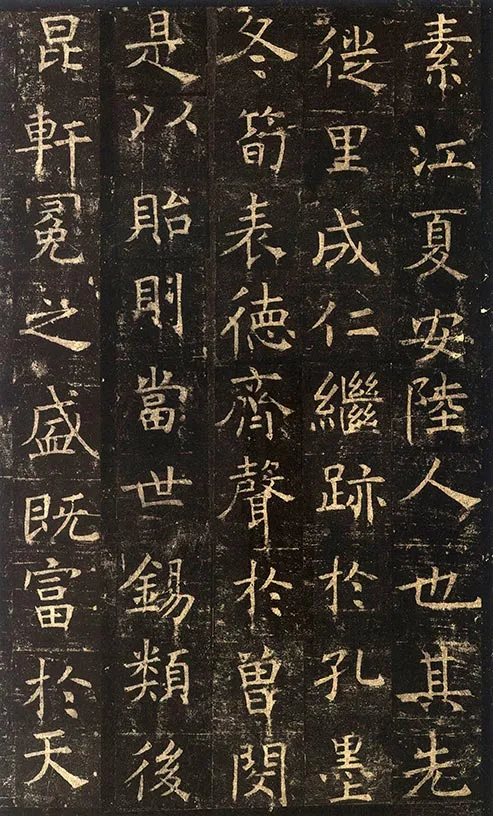 素江夏安陸人也其先
徙里成仁繼跡於孔墨
冬筍表德齊聲於曾閔
是以貽則當世錫類後
昆軒冕之盛既富於天